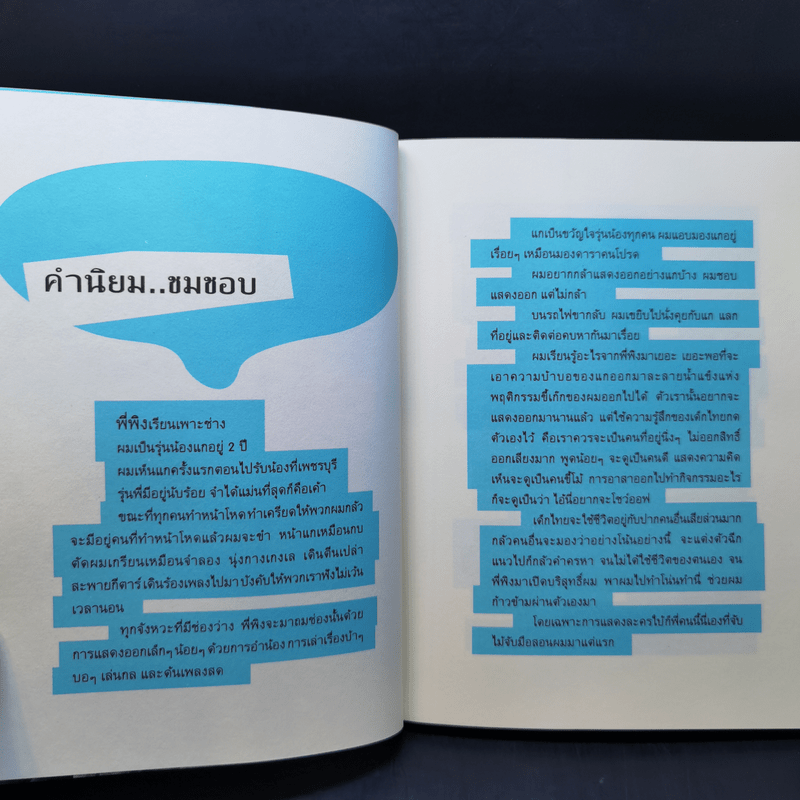 คำนิยม..ชมชอบ
พี่พิงเรียนเพาะช่าง
ผมเป็นรุ่นน้องแกอยู่ 2 ปี
ผมเห็นแกครั้งแรกตอนไปรับน้องที่เพชรบุรี
รุ่นพี่มีอยู่นับร้อย จำได้แม่นที่สุดก็คือเค้า
ขณะที่ทุกคนทำหน้าโหดทำเครียดให้พวกผมกลัว
จะมีอยู่คนที่ทำหน้าโหดแล้วผมจะขำ หน้าแกเหมือนกบ
ตัดผมเกรียนเหมือนจำลอง นุ่งกางเกงเล เดินตีนเปล่า
สะพายกีตาร์ เดินร้องเพลงไปมา บังคับให้พวกเราฟังไม่เว้น
เวลานอน
ทุกจังหวะที่มีช่องว่าง พี่พิงจะมาถมช่องนั้นด้วย
การแสดงออกเล็กๆ น้อยๆ ด้วยการอำน้อง การเล่าเรื่องบ้าๆ
บอๆ เล่นกล และด้นเพลงสด
แกเป็นขวัญใจรุ่นน้องทุกคน ผมแอบมองแกอยู่
เรื่อยๆ เหมือนมองดาราคนโปรด
ผมอยากกล้าแสดงออกอย่างแกบ้าง ผมชอบ
แสดงออก แต่ไม่กล้า
บนรถไฟขากลับ ผมเขยิบไปนั่งคุยกับแก แลก
ที่อยู่และติดต่อคบหากันมาเรื่อย
ผมเรียนรู้อะไรจากพี่พิงมาเยอะ เยอะพอที่จะ
เอาความบ้าบอของแกออกมาละลายน้ำแข็งแห่ง
พฤติกรรมขี้เก๊กของผมออกไปได้ ตัวเรานั้นอยากจะ
แสดงออกมานานแล้ว แต่ใช้ความรู้สึกของเด็กไทยกด
ตัวเองไว้ คือเราควรจะเป็นคนที่อยู่นิ่งๆ ไม่ออกสิทธิ์
ออกเสียงมาก พูดน้อยๆ จะดูเป็นคนดี แสดงความคิด
เห็นจะดูเป็นคนขี้โม้ การอาสาออกไปทำกิจกรรมอะไร
ก็จะดูเป็นว่า ไอ้นี่อยากจะโชว์ออฟ
เด็กไทยจะใช้ชีวิตอยู่กับปากคนอื่นเสียส่วนมาก
กลัวคนอื่นจะมองว่าอย่างโน้นอย่างนี้ จะแต่งตัวฉีก
แนวไปก็กลัวคำครหา จนไม่ได้ใช้ชีวิตของตนเอง จน
พี่พิงมาเปิดบริสุทธิ์ผม พาผมไปทำโน่นทำนี่ ช่วยผม
ก้าวข้ามผ่านตัวเองมา
โดยเฉพาะการแสดงละครใบ้ก็พี่คนนี้นี่เองที่จับ
ไม้จับมือสอนผมมาแต่แรก